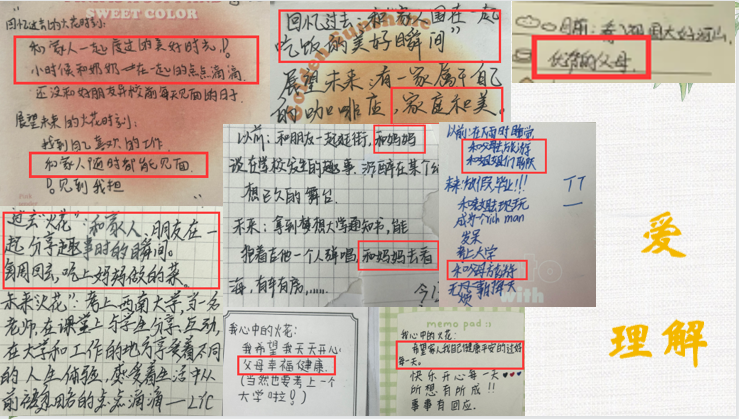 SWEET COLOR
回忆过去的火花时刻:
和家人一起度过的美好时光!
小时候和奶奶一在一起的点点滴滴
还没和好朋友异校前每天见面的日子.
展望未来的火花时刻:
找到自己喜欢的工作.
和家人随时都能见面.
回忆过去,和“家人围在一起
吃饭的美好瞬间”
展望未来:有一家属于自己
的咖啡店,家庭和美。
目前:看祖国大好河山
伙伴的父母.
以前:和朋友一起逛街,和妈妈
说在学校发生的趣事,沉醉在某个幻
想已久的舞台.
未来:拿到梦想大学通知书,能
抱着吉他一个人弹唱,和妈妈去看
海,有车有房,......
以前:在雨时睡觉
和父母旅游
未来:放假毕业!!!
成为个rich man
发呆
考上大学
和父母旅游
烦
过去“火花”:和家人、朋友在一
起分享趣事时的瞬间。
每周回去,吃上妈妈做的菜。
未来“火花”:考上西南大学,当一名
老师,在课堂上与学生分享、互动,
在大学和工作的地方享受着不同
的人生体验,感受着生活中从
前该忽略的点点滴滴——LYC
我心中的火花:
我希望我天天开心
父母幸福健康.
(当然也要考上一个
大学啦!)
memo pad:
我心中的火花:
希望家人和自己健康平安的过好
每一天。
快乐开心每一天♥♥♥
所想有所成!!
事事有回应.
爱
理解
with